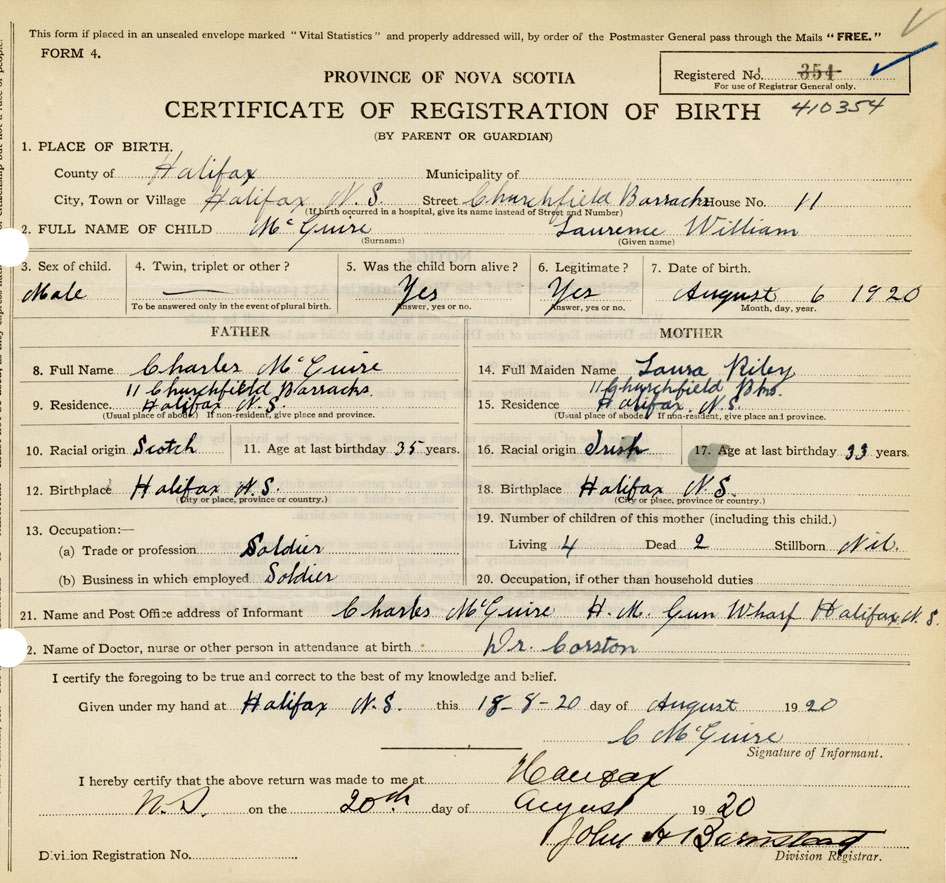 This form if placed in an unsealed envelope marked "Vital Statistics" and properly addressed will, by order of the Postmaster General pass through the Mails "FREE."
FORM 4.
Registered No. 354
For use of Registrar General only.
PROVINCE OF NOVA SCOTIA
CERTIFICATE OF REGISTRATION OF BIRTH 410354
(BY PARENT OR GUARDIAN)
1. PLACE OF BIRTH.
County of Halifax Municipality of
City, Town or Village Halifax N.S. Street Churchfield Barracks House No. 11
(If birth occurred in a hospital, give its name instead of Street and Number)
2. FULL NAME OF CHILD McGuire Laurence William
(Surname) (Given name)
3. Sex of child. 4. Twin, triplet or other? 5. Was the child born alive? 6. Legitimate? 7. Date of birth.
Male — Yes Yes August 6 1920
To be answered only in the event of plural birth. Answer, yes or no. Answer, yes or no. Month, day, year.
FATHER MOTHER
8. Full Name Charles McGuire 14. Full Maiden Name Laura Riley
11 Churchfield Barracks. 11 Churchfield Bks.
9. Residence. Halifax N.S. 15. Residence Halifax, N.S.
(Usual place of abode) If non-resident, give place and province. (Usual place of abode) If non-resident, give place and province.
10. Racial origin Scotch 11. Age at last birthday 35 years. 16. Racial origin Irish 17. Age at last birthday 33 years.
12. Birthplace Halifax N.S. 18. Birthplace Halifax N.S.
(City or place, province or country.) (City or place, province or country.)
13. Occupation:— 19. Number of children of this mother (including this child.)
(a) Trade or profession Soldier Living 4 Dead 2 Stillborn Nil.
(b) Business in which employed Soldier 20. Occupation, if other than household duties
21. Name and Post Office address of Informant Charles McGuire H.M. Gun Wharf Halifax N.S.
2. Name of Doctor, nurse or other person in attendance at birth Dr. Corston
I certify the foregoing to be true and correct to the best of my knowledge and belief.
Given under my hand at Halifax N.S. this 18-8-20 day of August 1920
C McGuire
Signature of Informant.
I hereby certify that the above return was made to me at Halifax
N.S. on the 20th day of August 1920
John H Barnstead
Division Registrar.
Division Registration No.